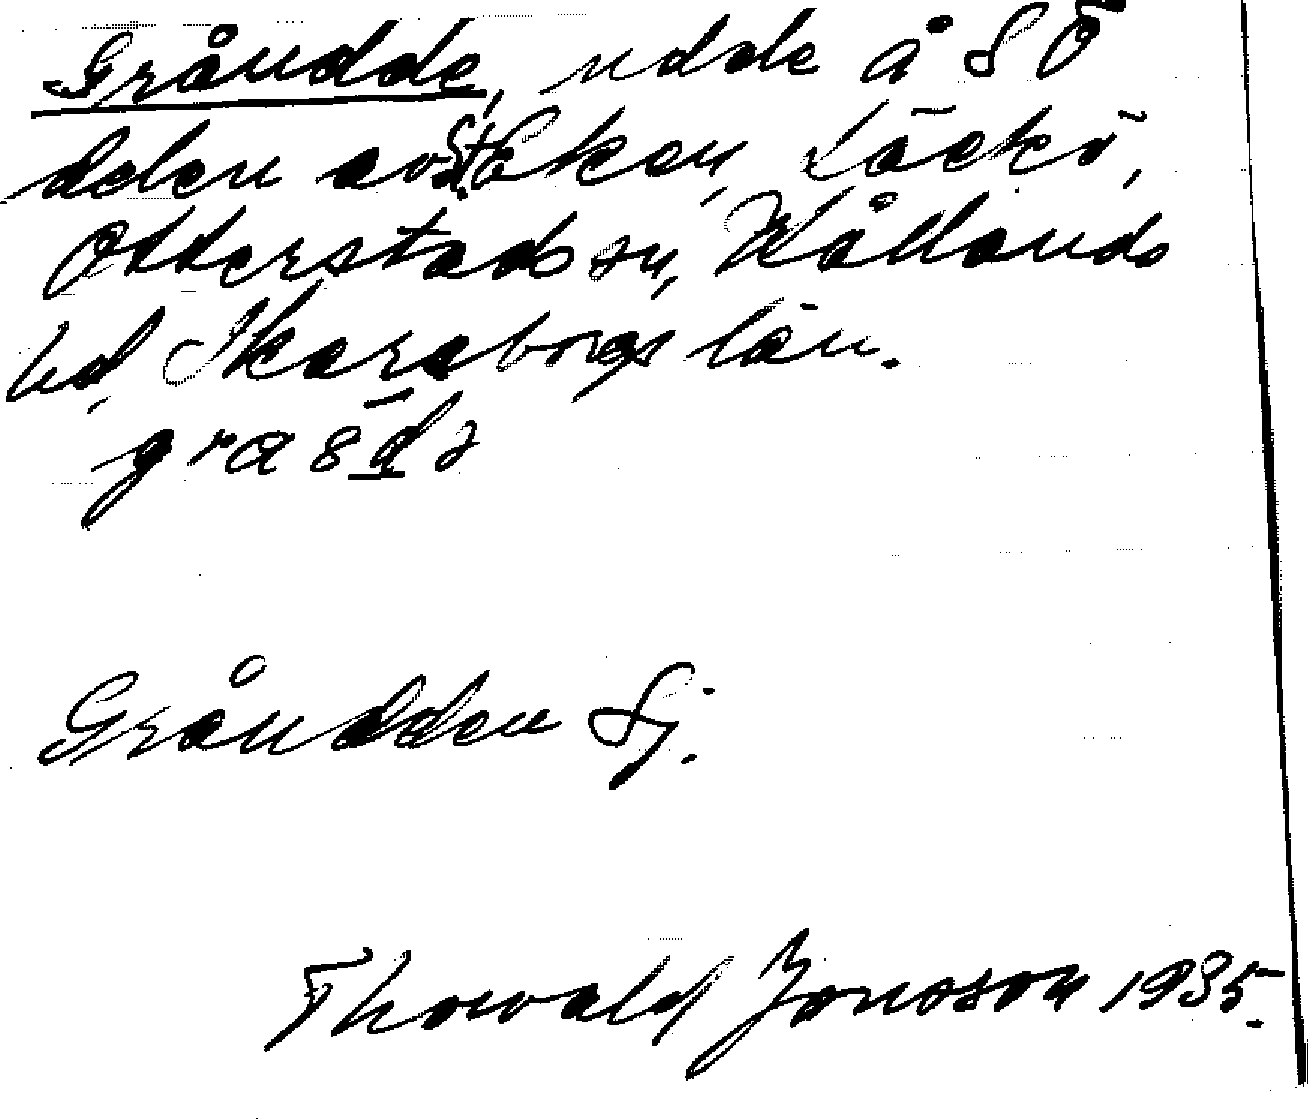 Gråudde, udde å SÖ
delen av St. Eken, Läckö,
Otterstads sn, Kållands
hd, Skaraborgs län.
Gråudden Sj.
Thorvald Jonsson 1935.